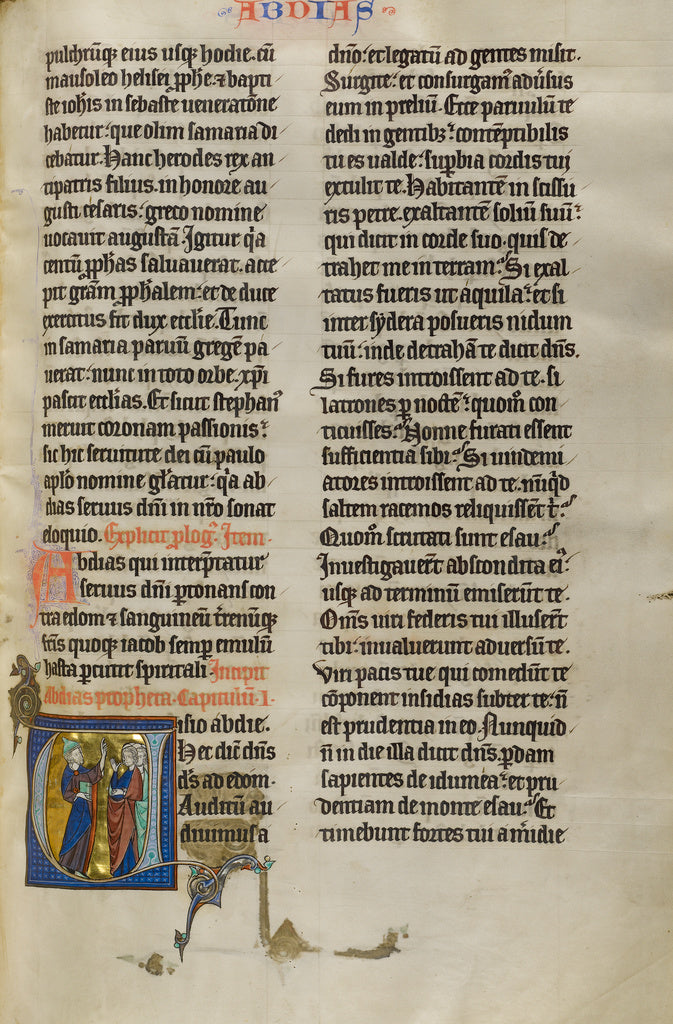 ABDIAS
pulchrūq; eius usq; hodie. cū
mausoleo helisei ꝓphe. ⁊ bapti
ste ioh̄is in sebaste ueneratōne
habetur. que olim samaria di
cebatur. Hanc herodes rex an
tipatris filius. in honore au
gusti cesaris. greco nomine
uocauit augustā. Igitur q̄a
centū ꝓphas saluauerat. acce
pit grām ꝓphalem. et de duce
exercitus fit dux eccl̄ie. Tunc
in samaria paruū gregē pa
uerat. nunc in toto orbe. xp̄i
pascit eccl̄ias. Et sicut stephan᾿
meruit coronam passionis.
sic hic seruitute dei cū paulo
apl̄o nomine gl̄atur. q̄a ab
dias seruus dn̄i in nr̄o sonat
eloquio. Explicit ꝓlog᾿. Item.
Abdias qui interp̄tatur
seruus dn̄i ꝑtonans con
tra edom ⁊ sanguineū t̄renūq;
fr̄is quoq; iacob semꝑ emulū
hasta ꝑcutit spiritali. Incipit
Abdias propheta. Capitulū. I.
Visio abdie.
Hec dic̄ dn̄s
d̄s ad edom.
Auditū au
diuimus a
dn̄o. et legatū ad gentes misit.
Surgite. et consurgam᾿ adūsus
eum in preliū. Ecce paruulū te
dedi in gentibꝫ. contēptibilis
tu es ualde. suꝑbia cordis tui
extulit te. Habitantē in scissu
ris petre. exaltantē soliū suū.
qui dicit in corde suo. quis de
trahet me in terram. Si exal
tatus fueris ut aquila. et si
inter sydera posueris nidum
tuū. inde detrahā te dicit dn̄s.
Si fures introissent ad te. si
latrones ꝑ noctē. quom̄ con
ticuisses. Nonne furati essent
sufficientia sibi. Si uindemi
atores introissent ad te. nūq̄d
saltem racemos reliquissēt t̄.
Quom̄ scrutati sunt esau.
Inuestigauert̄ abscondita ei᾿.
usq; ad terminū emiserūt te.
Om̄s uiri federis tui illusert̄
tibi. inualuerunt aduersū te.
Viri pacis tue qui comedūt te
cōponent insidias subter te. n̄
est prudentia in eo. Nunquid
n̄ in die illa dicit dn̄s. ꝑdam
sapientes de idumea. et pru
dentiam de monte esau. Et
timebunt fortes tui a m̄idie